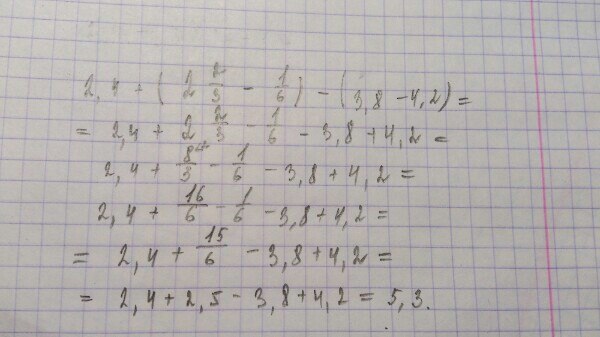 2,4 + (2 2/3 - 1/6) - (3,8 - 4,2) =
= 2,4 + 2 2/3 - 1/6 - 3,8 + 4,2 =
2,4 + 8/3 - 1/6 - 3,8 + 4,2 =
2,4 + 16/6 - 1/6 - 3,8 + 4,2 =
= 2,4 + 15/6 - 3,8 + 4,2 =
= 2,4 + 2,5 - 3,8 + 4,2 = 5,3.